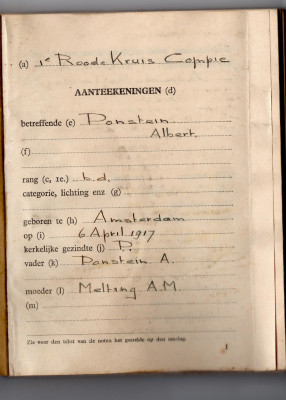 (a) 1e Roode Kruis Compie
AANTEEKENINGEN (d)
betreffende (e) Donstein
Albert.
(f)
rang (c, 1e.) b.d.
categorie, lichting enz (g)
geboren te (h) Amsterdam
op (i) 6 April 1917
kerkelijke gezindte (j) P.
vader (k) Donstein A.
moeder (l) Melting A.M.
(m)
Zie voor den tekst van de noten het gestelde op den omslag.
1